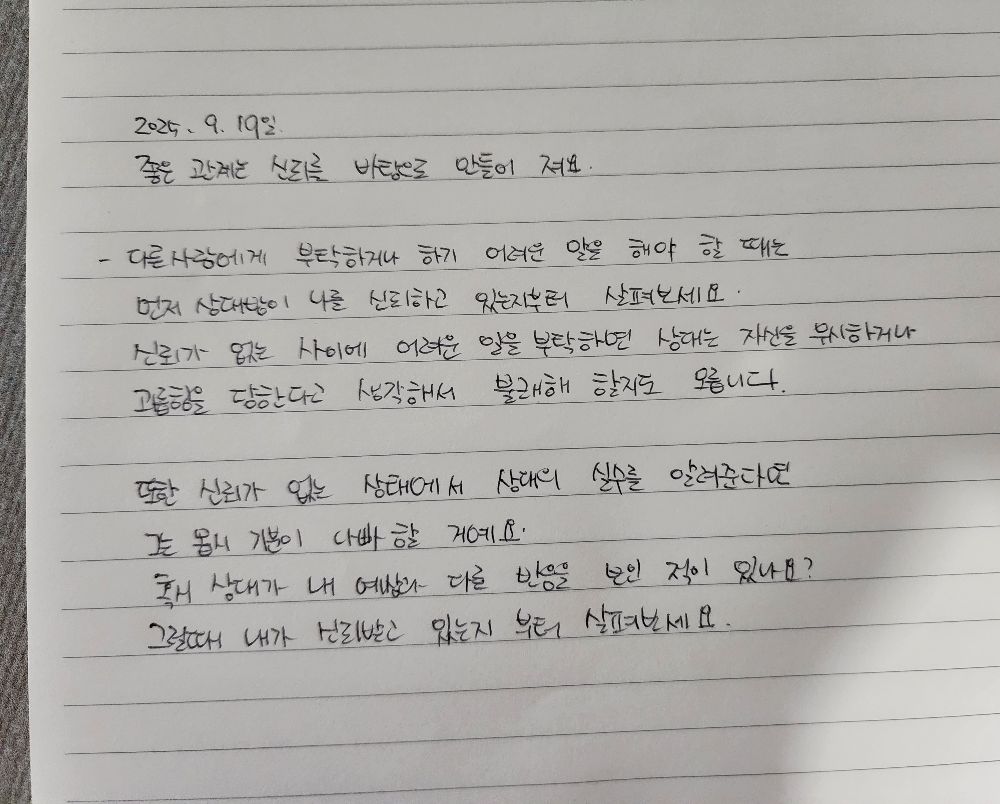 2025. 9. 19일.
좋은 관계는 신뢰를 바탕으로 만들어 져요.
- 다른사람에게 부탁하거나 하기 어려운 말을 해야 할 때는
먼저 상대방이 나를 신뢰하고 있는지부터 살펴보세요.
신뢰가 없는 사이에 어려운 일을 부탁하면 상대는 자신을 무시하거나
괴롭힘을 당한다고 생각해서 불쾌해 할지도 모릅니다.
또한 신뢰가 없는 상태에서 상대의 실수를 알려준다면
그는 몹시 기분이 나빠 할 거예요.
혹시 상대가 내 예상과 다른 반응을 보인 적이 있나요?
그럴때 내가 신뢰받고 있는지 부터 살펴보세요.